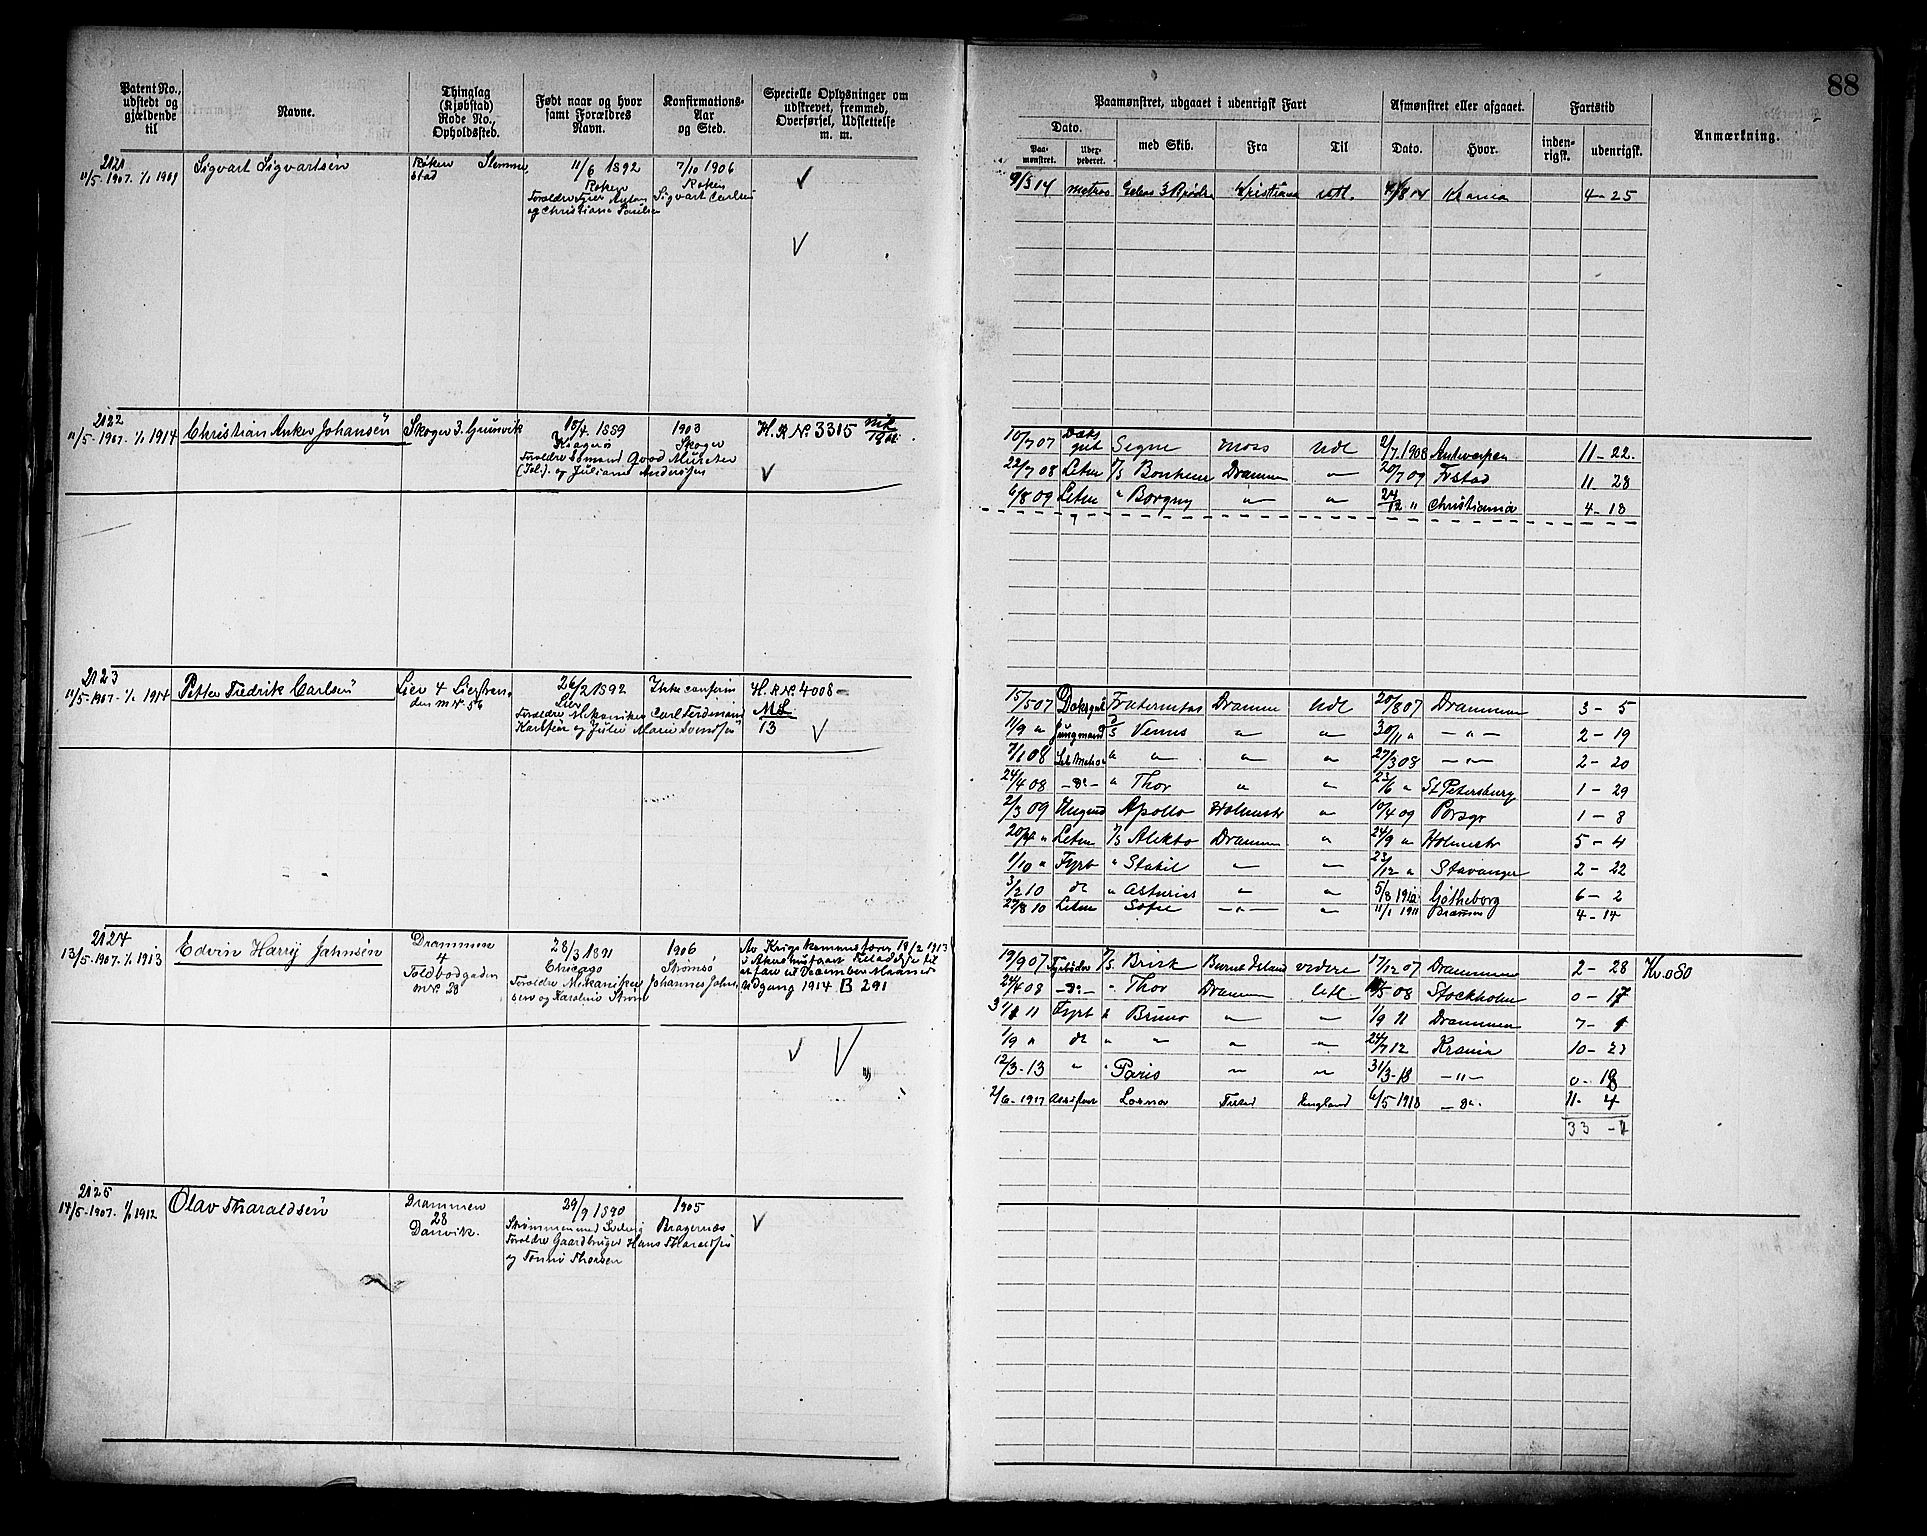 88
Patent No., udstedt og gjældende til
Navne.
Thinglag (Kjøbstad) Rode No., Opholdssted.
Født naar og hvor samt Forældres Navn.
Konfirmations- Aar og Sted.
Specielle Oplysninger om udskrevet, fremmed, Overførsel, Udslettelse m. m.
Paamønstret, udgaaet i udenrigsk Fart
Afmønstret eller afgaaet.
Fartstid
Anmærkning.
Dato.
Paa- mønstret.
med Skib.
Fra
Til
Dato.
Hvor.
inden- rigsk.
udenrigsk.
2121
11/5 1907. 1/1 1909
Sigvart Sigvartsen
Røken Slemmestad
11/6 1892
Røken
7/10 1906
Røken
Sigvart Carlsen
og Christiane Paulsen
9/3 14 matros Kristiania Udl. 14 Krania 4-25
2122
11/5-1907. 1/1 1914
Christian Anker Johansen
Skoger 3. Grunvik
10/4. 1889
Kragerø
1903
Skoger
Forældre Formand Good Murcten
(Tol.). og Juliane Andersen
H. R. No. 3315
10/7 07 Dæksgut Segne Moss Udl 2/7. 1908 Antwerpen 11-22.
22/7 08 Letm D/S Bonheur Drammen " 20/7 09 Frstad 11 28
6/8 09 Letm " Borgny " " 24/12 " Christiania 4-18
2123
11/5-1907. 1/1 1914
Petter Fredrik Carlsen
Lier 4 Lierstranden m No. 56
26/2 1892
Lier
Ikke confirm
Forældre Mekaniker Carl Ferdinand
Karlsen og Julie Marie Svendsen
H. R No. 4008
ML
13
15/5 07 Dæksgut Fraternitas Drammen Udl 20/8 07 Drammen 3-5
11/9 " Jungmand D/S Venus " " 30/11 " -"- 2-19
7/1 08 " " " " 27/3 08 -"- 2-20
24/4 08 -do- " Thor " " 23/6 " St. Petersburg 1-29
2/3 09 Apollo Holmestr " 10/4 09 Porsgr 1-8
20/4 " Letm D/S Alekto Drammen " 24/9 " Holmestr 5-4
1/10 " Fyrb " Stabil " " 23/12 " Stavanger 2-22
3/2 10 do " Asturias " " 5/8 1910 Gøtheborg 6-2
27/8 10 Letm Sofie -"- " 11/1 1911 Drammen 4-14
2124
13/5-1907. 1/1 1913
Edvin Harry Jahnsen
Drammen
4
Toldbodgaden
m No. 28
28/3 1891
Chicago
1906
Strømsø
Forældre Mekaniker Johannes Johnsen
og Karoline Strøm
Av Krigskommissæren 18/2 1913
i Akershus gaat tilladelse til
at fare til December Maaned
Udgang 1914. B 291
19/9 07 Fyrbøder D/S Brisk Burnt Island videre 17/12 07 Drammen 2-28 Kr. 080
24/4 08 -do- " Thor Drammen Udl 08 Stockholm 0-17
11 Fyrb " Bruno " " 1/9 11 Drammen 7-1
1/9 " do " " " " 24/7 12 Krania 10-23
12/3-13 " " Paris " " 31/3-13 -"- 0-18
2/6-1917 Assistent Lorna Frstad England 6/5 1918 -do- 11-4
33
2125
14/5-1907. 1/1 1912
Olav Tharaldsen
Drammen
28
Danvik.
29/9 1890
Strømmen ved Svelvig
1905
Bragernæs
Forældre Gaardbruger Hans Tharaldsen
og Tonny Thorsen